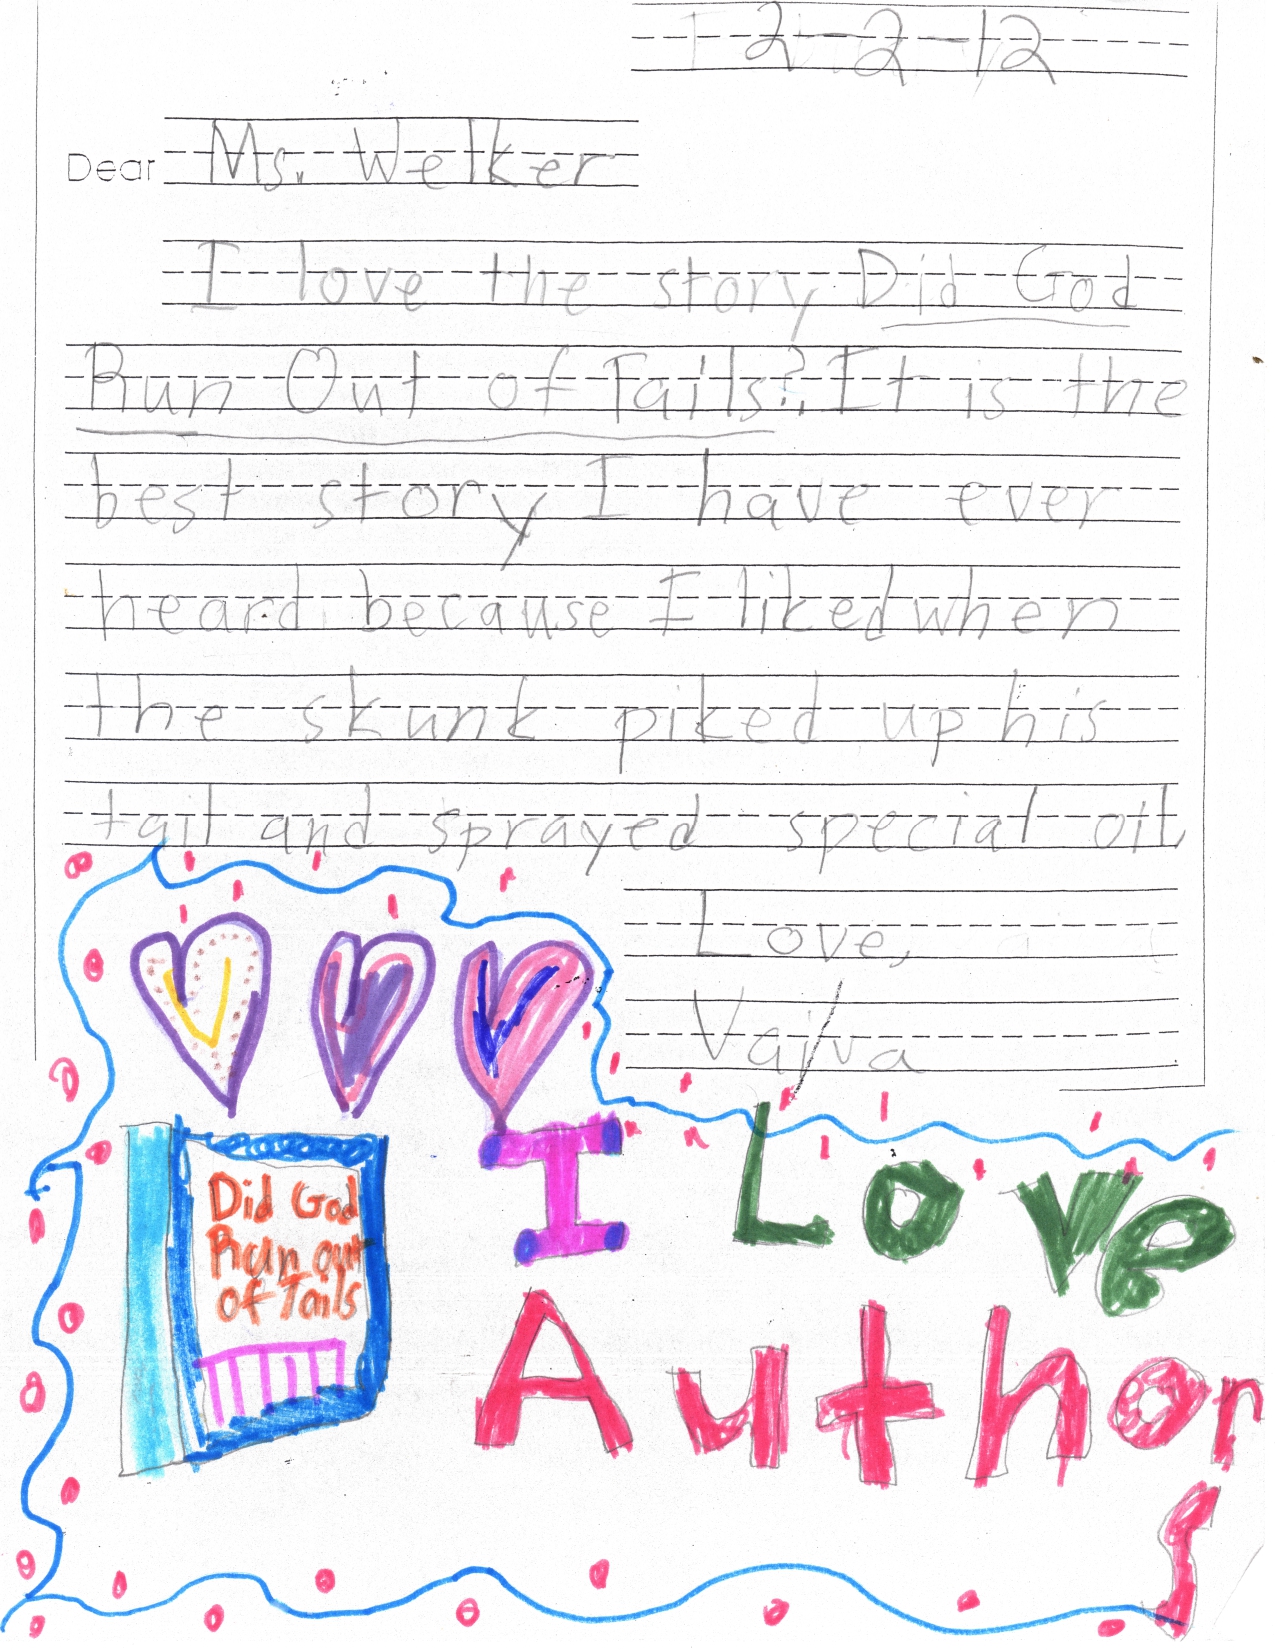 2-2-12
Dear Ms. Welker
I love the story Did God
Run Out of Tails? It is the
best story I have ever
heard because I liked when
the skunk piked up his
tail and sprayed special oil
Love,
Vajva
Did God
Run out
of Tails
I Love
Authors